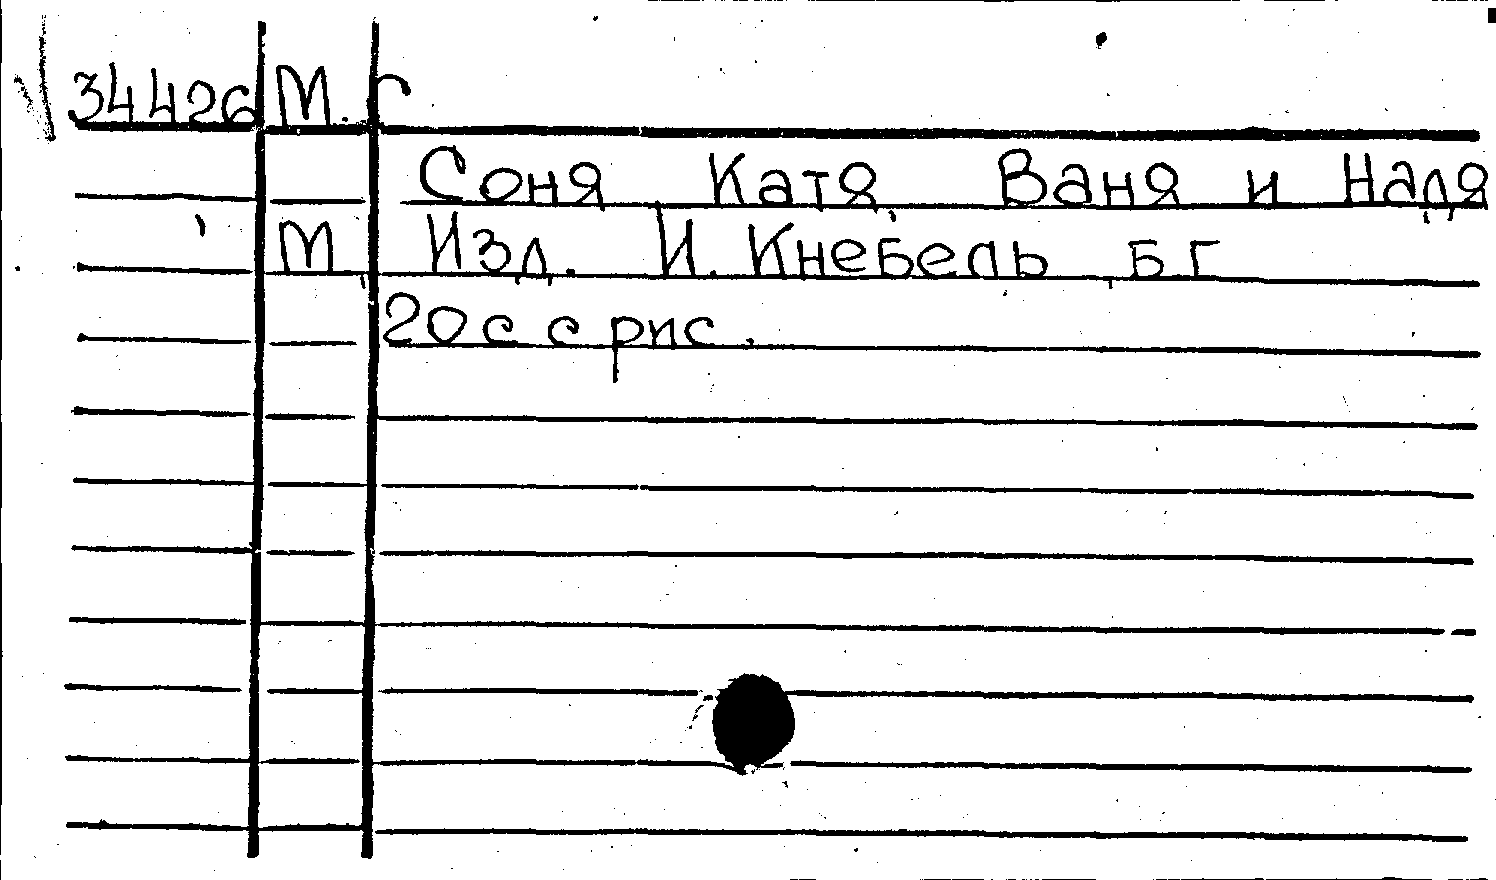 34426 М. Г
Соня Катя, Ваня и Надя
М Изд. И. Кнебель, б г
20 с с рис.